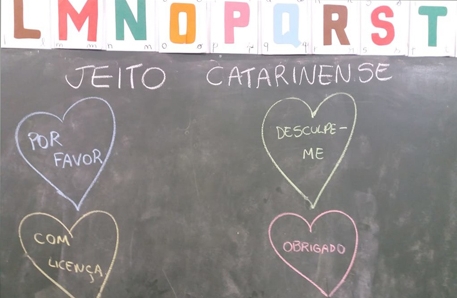 L M N O P Q R S T
JEITO CATARINENSE
POR
FAVOR
DESCULPE-
ME
COM
LICENÇA
OBRIGADO